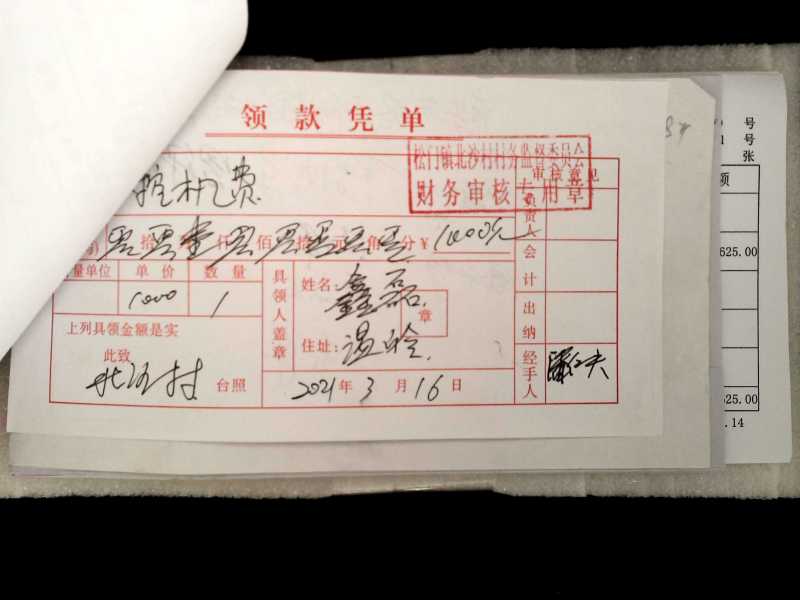 领款凭单
松门镇北沙村村务监督委员会
财务审核专用章
挖机费
审核意见
拾 仟 佰 拾 元 角 分 ¥ 1000元
负责人
会计
数量单位 单价 数量
1000 1
具领人盖章
姓名: 鑫磊
章
住址: 温岭
上列具领金额是实
此致
北沙村 台照
2021年3月16日
出纳
经手人
号
号
张
额
625.00
625.00
.14